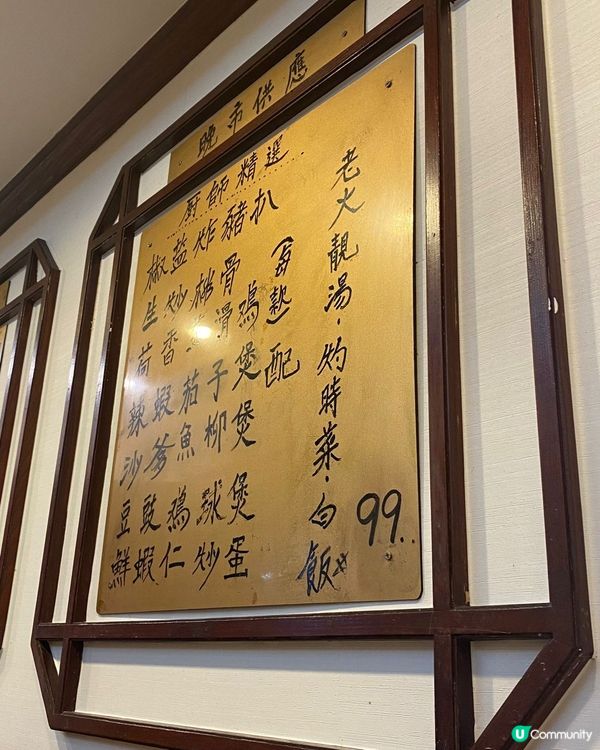 晚市供應
廚師精選
椒盐炸豬扒
生炒排骨
荷香滑鷄
辣蝦茄子煲
沙爹魚柳煲
豆豉鷄球煲
鮮蝦仁炒蛋
(每款)配
老火靚湯·灼時菜·白飯
99..
U Community